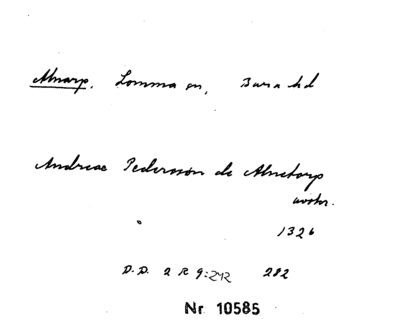 Alnarp. Lomma sn, Bara hd
Andreae Pedersson de Alnetorp
1326
D.D. 2 R 9:242 282
Nr 10585